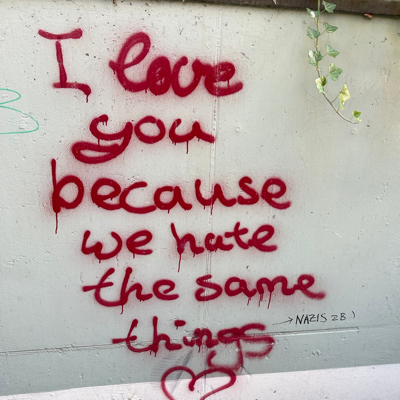 I love
you
because
we hate
the same
things
→NAZIS z.B.)